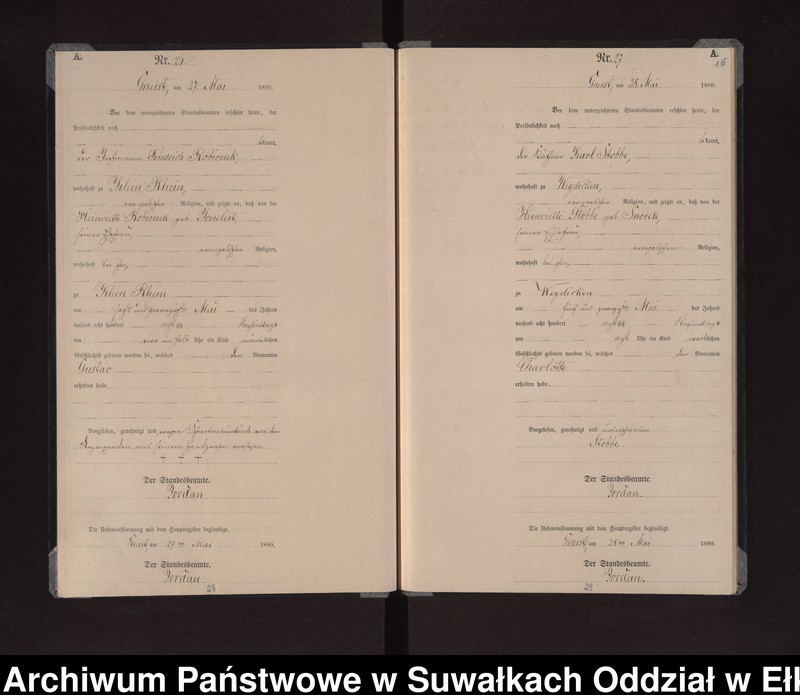 A.
Nr.
Gneist, am 27. Mai 1880.
Vor dem unterzeichneten Standesbeamten erschien heute, der
Persönlichkeit nach
bekannt,
der Friedrich Robionek,
wohnhaft zu Klein Rhein,
evangelischer Religion, und zeigte an, daß von der
Heinriette Robionek geb.
seiner Ehefrau,
evangelischer Religion,
wohnhaft bei ihm,
zu Klein Rhein
am sechs und zwanzigsten Mai des Jahres
tausend acht hundert achtzig Nachmittags
um vier ein halb Uhr ein Kind männlichen
Geschlechts geboren worden sei, welches den Vornamen
Gustav
erhalten habe.
Vorgelesen, genehmigt und wegen
+ + +
Der Standesbeamte.
Jordan
Die Uebereinstimmung mit dem Hauptregister beglaubigt.
Gneist, am 27ten Mai 1880.
Der Standesbeamte.
Jordan.
28
A.
Nr. 27.
Gneist, am 28. Mai 1880.
Vor dem unterzeichneten Standesbeamten erschien heute, der
Persönlichkeit nach
bekannt,
der Käthner Karl Stobbe,
wohnhaft zu Weydicken,
evangelischer Religion, und zeigte an, daß von der
Heinriette Stobbe geb.
seiner Ehefrau,
evangelischer Religion,
wohnhaft bei ihm,
zu Weydicken
am fünf und zwanzigsten Mai des Jahres
tausend acht hundert achtzig Nachmittags
um acht Uhr ein Kind weiblichen
Geschlechts geboren worden sei, welches den Vornamen
Charlotte
erhalten habe.
Vorgelesen, genehmigt und unterschrieben
Stobbe.
Der Standesbeamte.
Jordan.
Die Uebereinstimmung mit dem Hauptregister beglaubigt.
Gneist, am 28ten Mai 1880.
Der Standesbeamte.
Jordan.
29
Archiwum Państwowe w Suwałkach Oddział w Eł